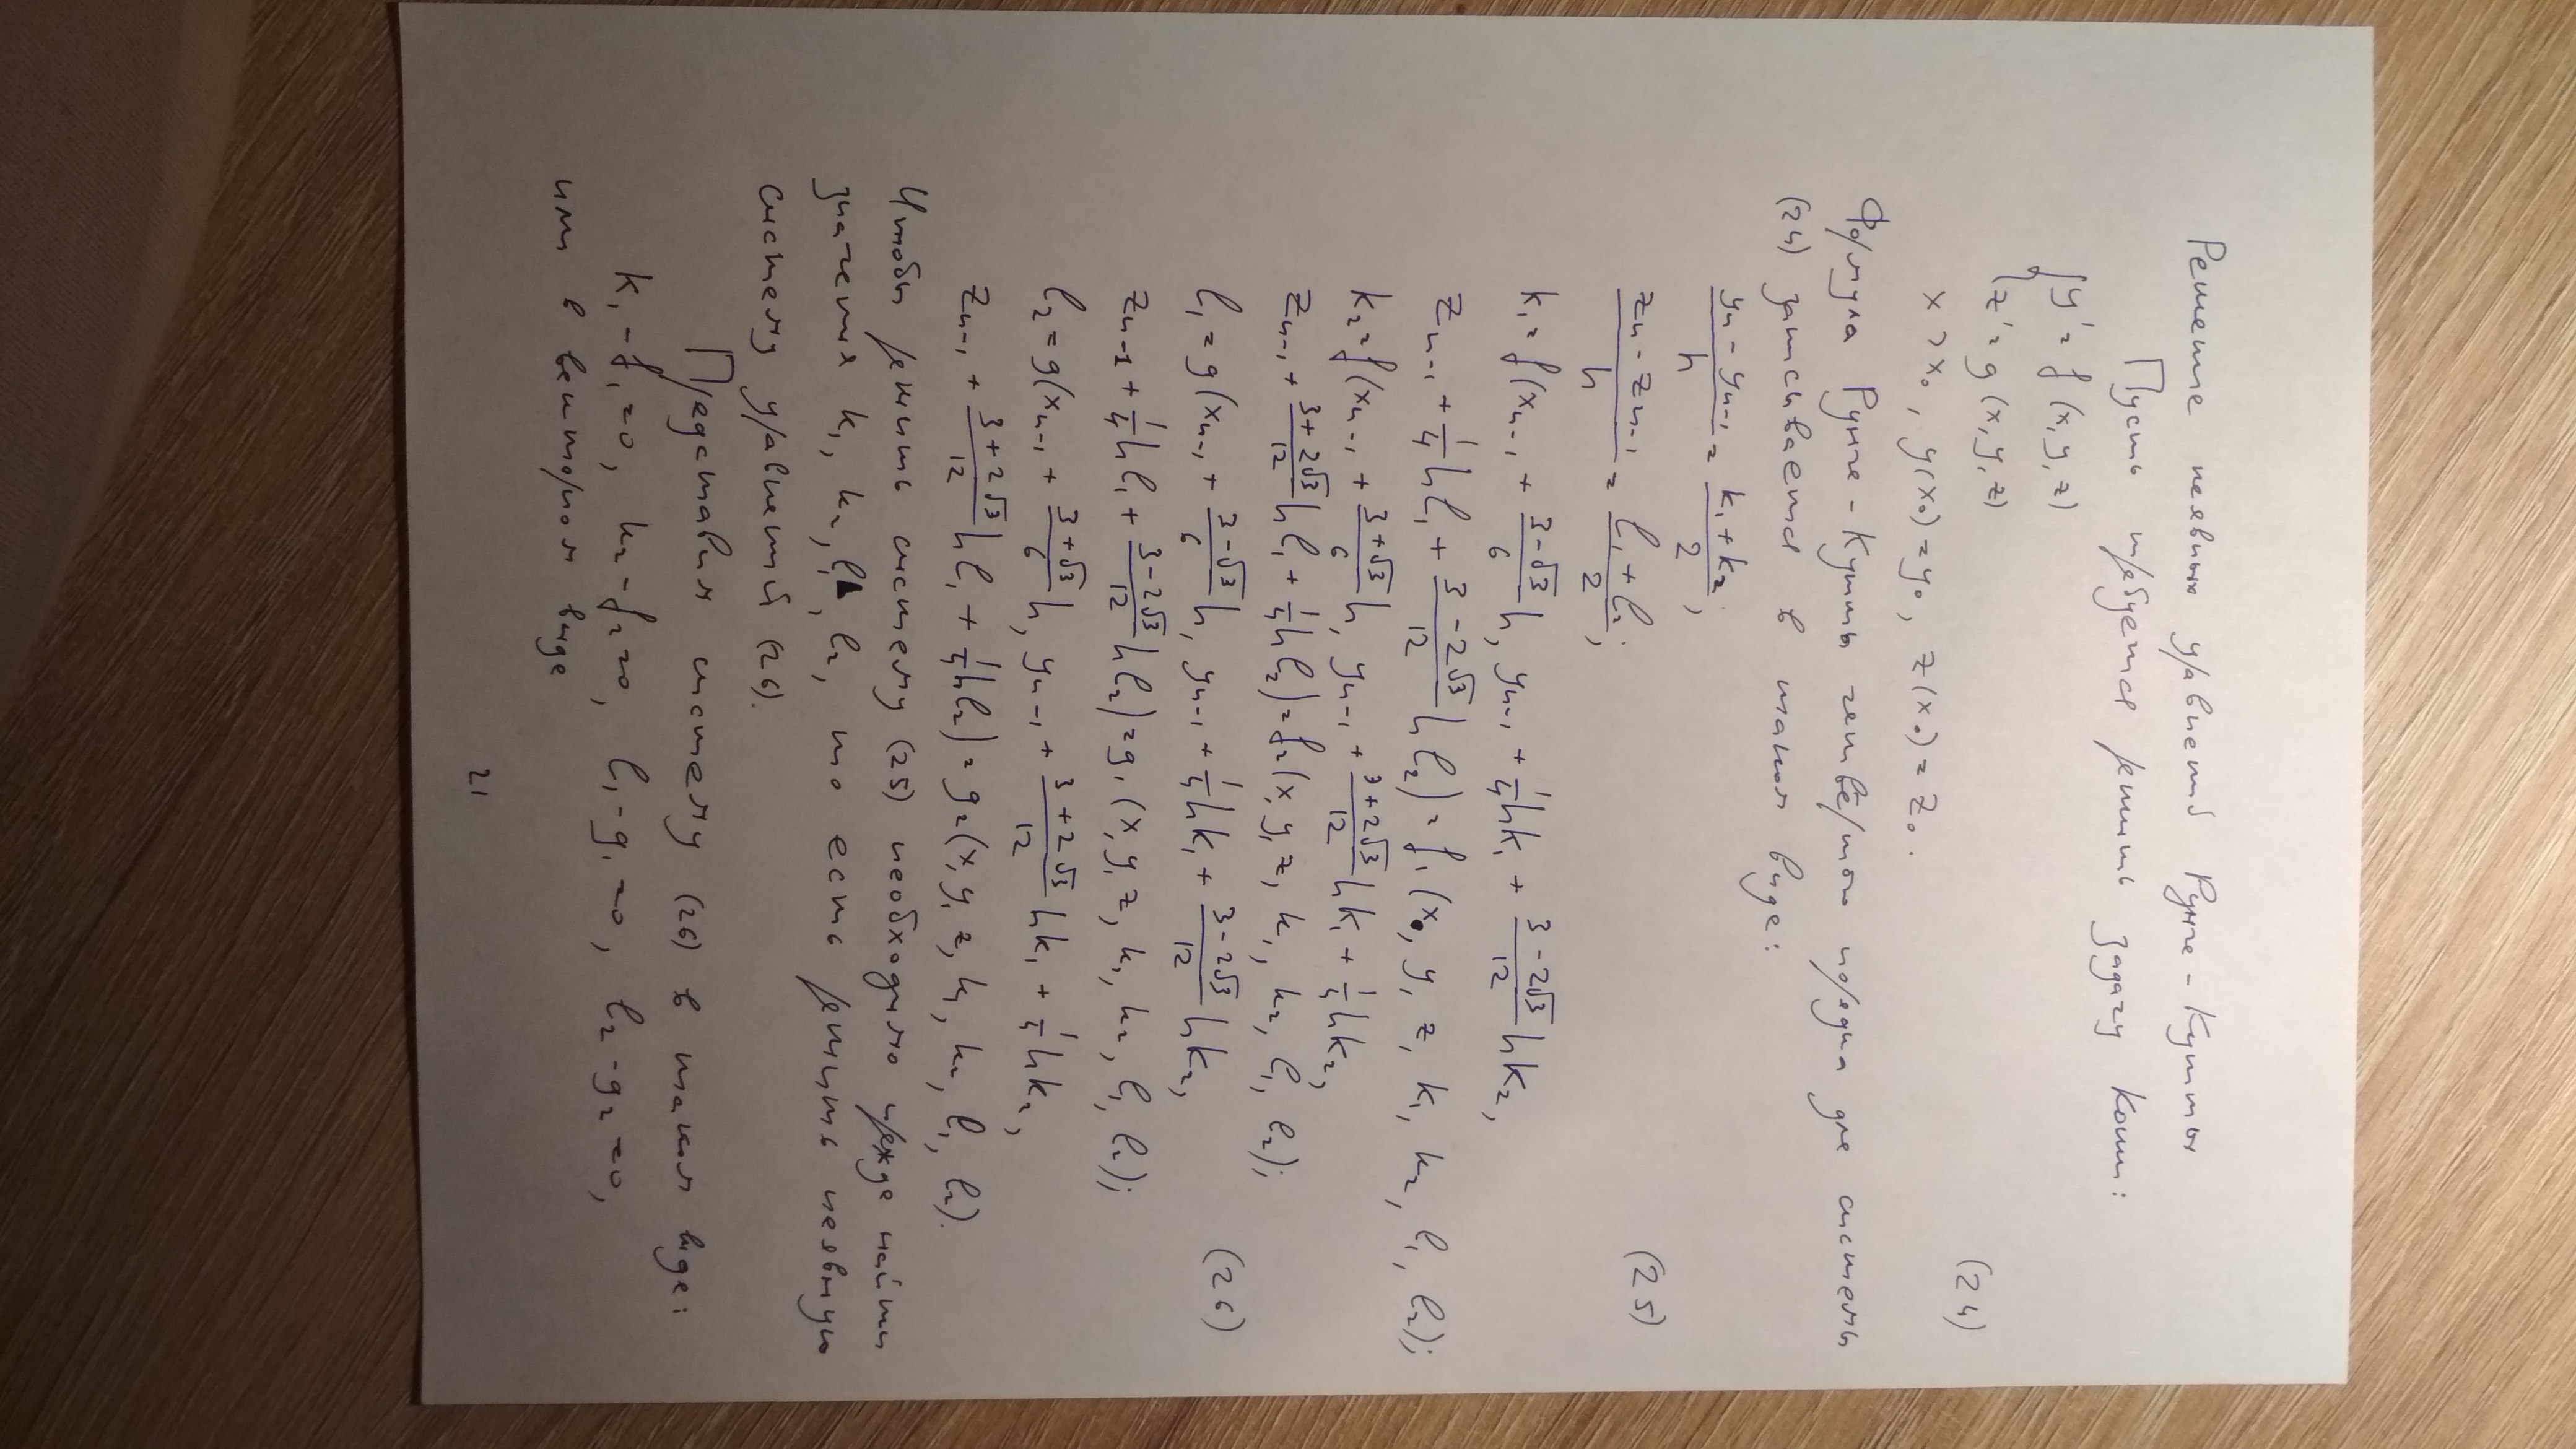 Решение неявных уравнений Рунге-Кутты
Пусть требуется решить задачу Коши:
y' = f(x, y, z)
z' = g(x, y, z)
(24)
x > x₀, y(x₀) = y₀, z(x₀) = z₀.
Формула Рунге-Кутты четвёртого порядка для системы
(24) записывается в таком виде:
(yₙ - yₙ₋₁)/h = (k₁ + k₂)/2;
(zₙ - zₙ₋₁)/h = (l₁ + l₂)/2;
(25)
k₁ = f(xₙ₋₁ + (3-√3)/6 h, yₙ₋₁ + 1/4 hk₁ + (3-2√3)/12 hk₂,
zₙ₋₁ + 1/4 hl₁ + (3-2√3)/12 hl₂) = f₁(x, y, z, k₁, k₂, l₁, l₂);
k₂ = f(xₙ₋₁ + (3+√3)/6 h, yₙ₋₁ + (3+2√3)/12 hk₁ + 1/4 hk₂,
zₙ₋₁ + (3+2√3)/12 hl₁ + 1/4 hl₂) = f₂(x, y, z, k₁, k₂, l₁, l₂);
l₁ = g(xₙ₋₁ + (3-√3)/6 h, yₙ₋₁ + 1/4 hk₁ + (3-2√3)/12 hk₂,
(26)
zₙ₋₁ + 1/4 hl₁ + (3-2√3)/12 hl₂) = g₁(x, y, z, k₁, k₂, l₁, l₂);
l₂ = g(xₙ₋₁ + (3+√3)/6 h, yₙ₋₁ + (3+2√3)/12 hk₁ + 1/4 hk₂,
zₙ₋₁ + (3+2√3)/12 hl₁ + 1/4 hl₂) = g₂(x, y, z, k₁, k₂, l₁, l₂).
Чтобы решить систему (25) необходимо прежде найти
значения k₁, k₂, l₁, l₂, то есть решить неявную
систему уравнений (26).
Представим систему (26) в таком виде:
k₁ - f₁ = 0, k₂ - f₂ = 0, l₁ - g₁ = 0, l₂ - g₂ = 0,
или в векторном виде
21